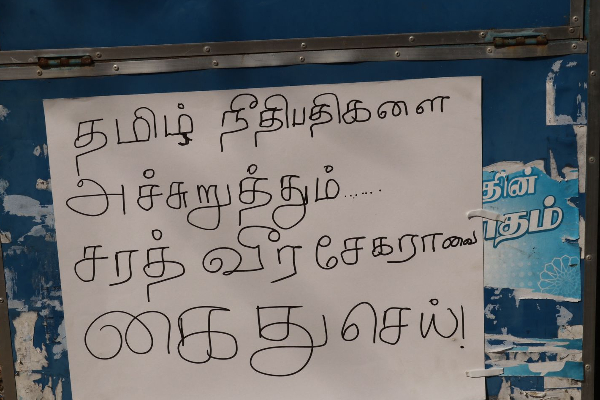 தமிழ் நீதிபதிகளை
அச்சுறுத்தும்......
சரத் வீரசேகராவை
கைது செய்!
தின்
தம்